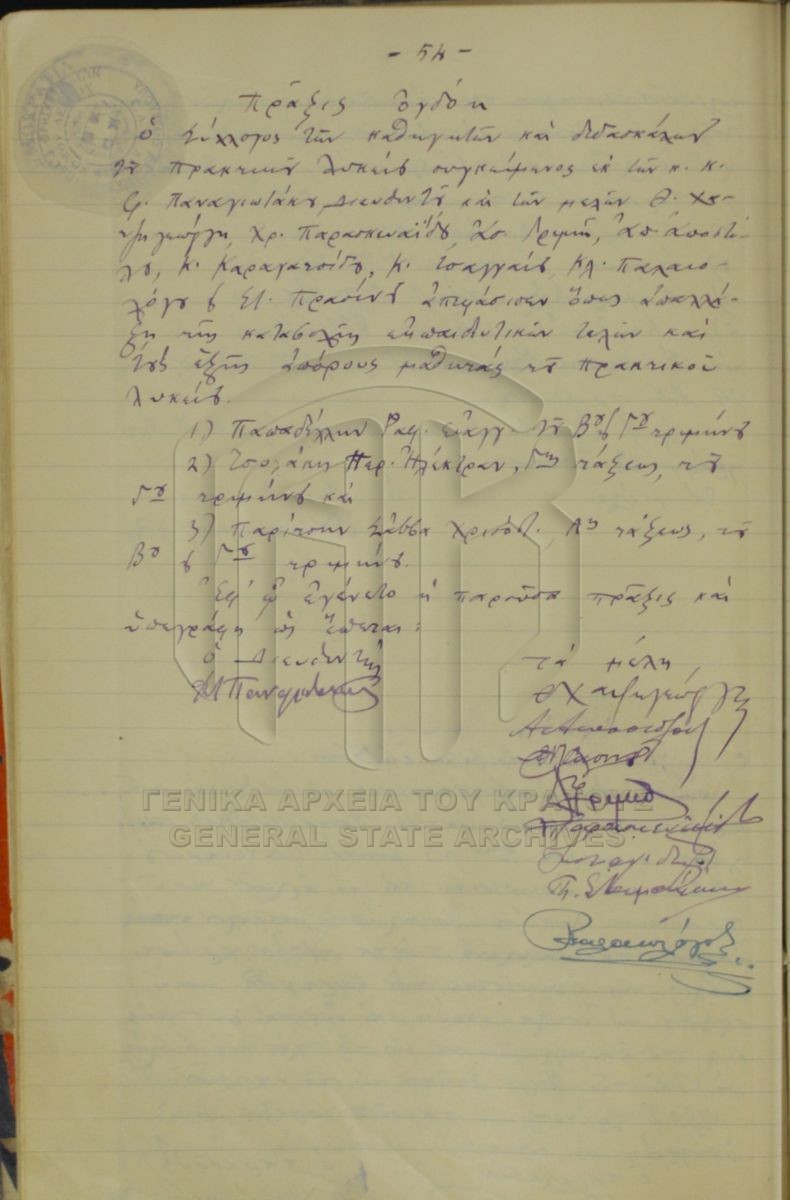 - 54 -
Πρᾶξις ὀγδόη
Ὁ Σύλλογος τῶν καθηγητῶν καὶ διδασκάλων
τοῦ πρακτικοῦ Λυκείου συγκείμενος ἐκ τῶν κ. κ.
Φ. Παναγιωτάκου, Διευθυντοῦ καὶ τῶν μελῶν Θ. Χα-
τζηγεώργη, Χρ. Παρασκευαΐδου, Ἀσ. Δριμῆ, Ἀπ. Ἀποστό-
λου, Κ. Καραγατσίδου, Κ. Τσαγγαίου, Κλ. Παλαιο-
λόγου & Στ. Πρασίνου ἀπεφάσισεν ὅπως ἀπαλλά-
ξῃ τῆς καταβολῆς ἐκπαιδευτικῶν τελῶν καὶ
τοὺς ἑξῆς ἀπόρους μαθητὰς τοῦ πρακτικοῦ
Λυκείου.
1) Παπαδέλλην Εὐαγγ. τοῦ Βου & Γου τριμήνου
2) Τσολάκη Περ. Ἠλέκτραν, Γης τάξεως, τοῦ
Γου τριμήνου καὶ
3) Παρίτσην Σάββα Χρυσόστ. Ης τάξεως, τοῦ
Βου & Γου τριμήνου.
Ἐφ' ᾧ ἐγένετο ἡ παροῦσα πρᾶξις καὶ
ὑπεγράφη ὡς ἕπεται:
Ὁ Διευθυντὴς
Τὰ μέλη
ΘΧατζηγεώργης
ΓΕΝΙΚΑ ΑΡΧΕΙΑ ΤΟΥ ΚΡΑΤΟΥΣ
GENERAL STATE ARCHIVES